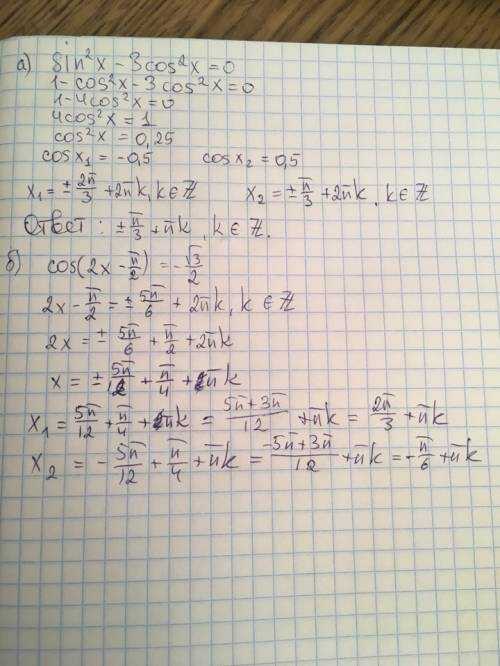 а) Sin²x - 3cos²x = 0
1 - cos²x - 3cos²x = 0
1 - 4cos²x = 0
4cos²x = 1
cos²x = 0,25
cosx₁ = -0,5 cosx₂ = 0,5
x₁ = ± 2π/3 + 2πk, k ∈ ℤ x₂ = ± π/3 + 2πk, k ∈ ℤ
Ответ: ± π/3 + πk, k ∈ ℤ.
б) cos(2x - π/2) = -√3/2
2x - π/2 = ± 5π/6 + 2πk, k ∈ ℤ
2x = ± 5π/6 + π/2 + 2πk
x = ± 5π/12 + π/4 + πk
x₁ = 5π/12 + π/4 + πk = (5π + 3π)/12 + πk = 2π/3 + πk
x₂ = - 5π/12 + π/4 + πk = (-5π + 3π)/12 + πk = -π/6 + πk